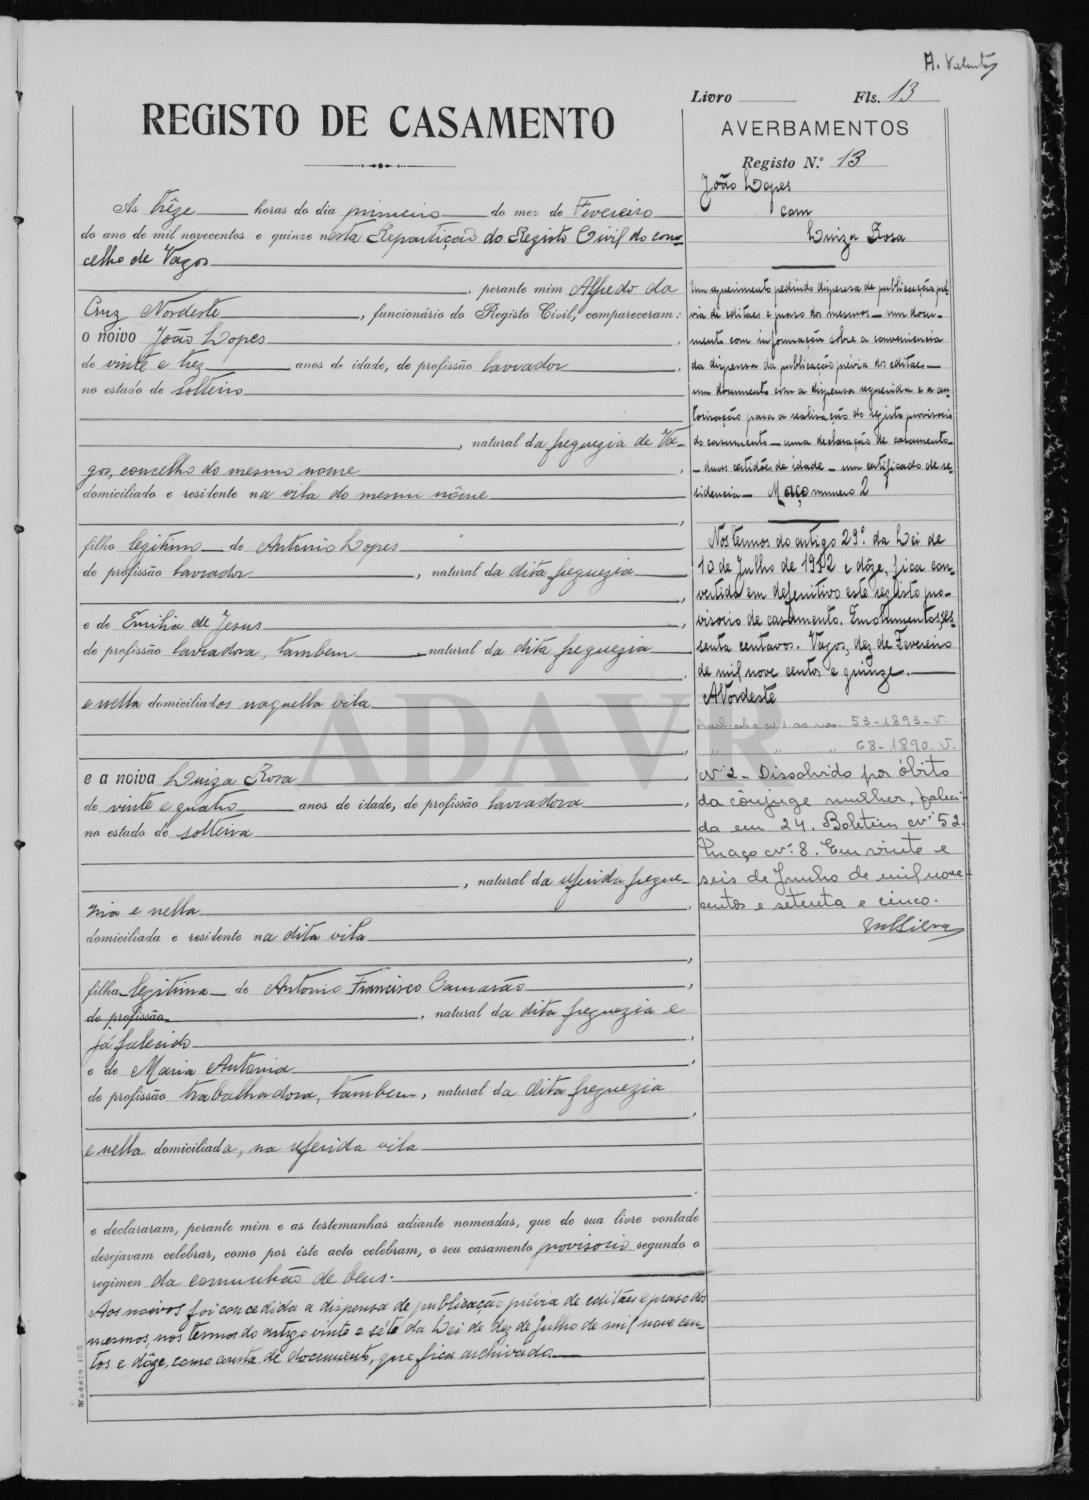 A. Valente
Livro Fls. 13
REGISTO DE CASAMENTO
AVERBAMENTOS
Registo N.º 13
João Lopes
com
Luiza Rosa
Às trêze horas do dia primeiro do mez de Fevereiro
do ano de mil novecentos e quinze nesta Repartição do Registo Civil do con-
celho de Vagos
, perante mim Alfredo da
Cruz Nordeste, funcionário do Registo Civil, compareceram:
o noivo João Lopes
de vinte e trez anos de idade, de profissão lavrador,
no estado de solteiro
, natural da freguezia de Va-
gos, concelho do mesmo nome,
domiciliado e residente na vila do mesmo nôme
,
filho legitimo de Antonio Lopes
de profissão lavrador, natural da dita freguezia
,
e de Emilia de Jesus,
de profissão lavradora, tambem natural da dita freguezia
.
e nella domiciliados naquella vila
e a noiva Luiza Rosa
de vinte e quatro anos de idade, de profissão lavradora,
no estado de solteira
, natural da referida fregue-
zia e nella,
domiciliada e residente na dita vila
,
filha legitima de Antonio Francisco Camarão,
de profissão, natural da dita freguezia e
já falecido,
e de Maria Antonia,
de profissão trabalhadora, tambem, natural da dita freguezia
,
e nella domiciliada, na referida vila
.
e declararam, perante mim e as testemunhas adiante nomeadas, que de sua livre vontade
desejavam celebrar, como por êste acto celebram, o seu casamento provisorio segundo o
regimen da comunhão de bens.
Aos noivos foi concedida a dispensa de publicação prévia de editaes e praso dos
mesmos, nos termos do artigo vinte e séte da Lei de dez de Julho de mil nove cen-
tos e dôze, como consta de documento, que fica archivado.
Modelo 103
Um requerimento pedindo dispensa de publicação pré-
via de editaes e praso dos mesmos — um docu-
mento com informação sobre a conveniencia
da dispensa da publicação prévia de editaes —
um documento com a dispensa requerida e a au-
torisação para a realisação do registo provisorio
do casamento — uma declaração de casamento
— duas certidões de idade — um certificado de re-
sidencia — Maço numero 2
Nos termos do artigo 29º. da Lei de
10 de Julho de 1912 e dôze, fica con-
vertido em definitivo este registo pro-
visorio de casamento. Emolumentos, ses-
senta centavos. Vagos, dez de Fevereiro
de mil nove centos e quinze.
ANordeste
53-1893-V.
68-1890. V.
Nº 2 - Dissolvido por óbito
da cônjuge mulher, faleci-
da em 24. Boletim Nº 52.
Maço Nº. 8. Em vinte e
seis de Junho de mil nove-
centos e setenta e cinco.
ADAVR